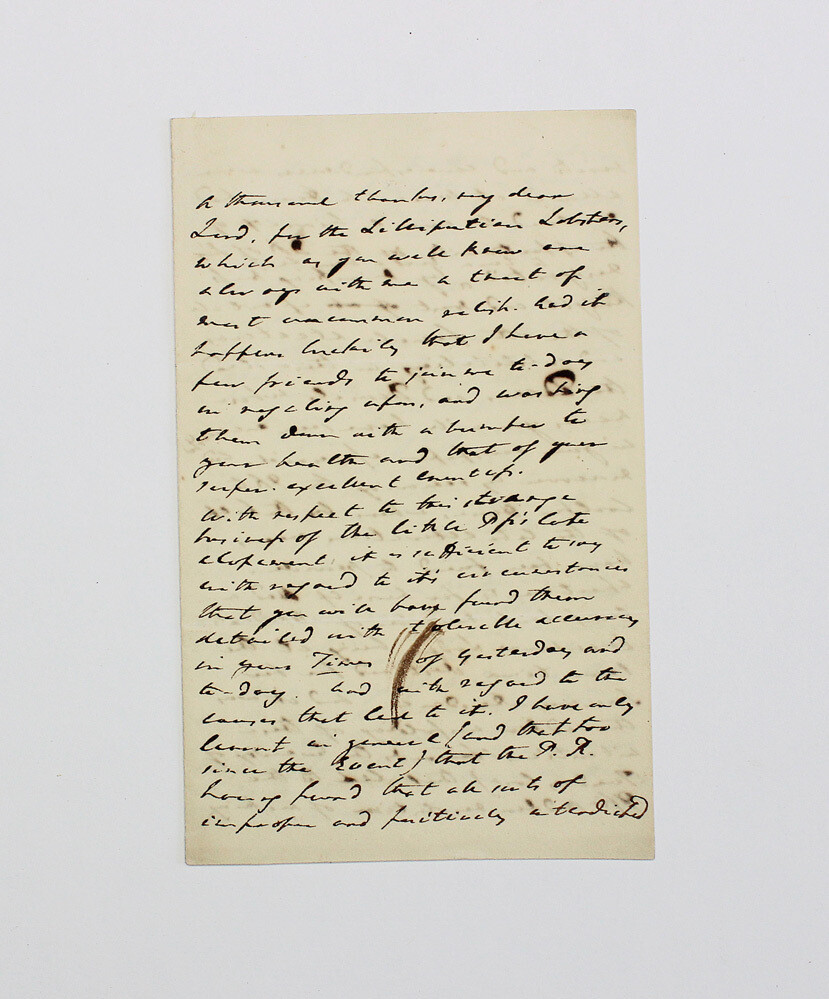 A thousand thanks, my dear
Lord, for the Lilliputian Lobsters,
which as you well know are
always with me a treat of
most uncommon relish. And it
happens luckily that I have a
few friends to join me to-day
in regaling upon, and washing
them down with a bumper to
your health and that of your
super-excellent
With respect to this strange
business of the little Pss's late
elopement it is sufficient to say
with regard to it's circumstances
that you will have found them
detailed with tolerable accuracy
in your Times of yesterday and
to-day. And with regard to the
causes that led to it. I have only
learnt in general (and that too
since the Event) that the P. R.
having found that all sorts of
improper and positively interdicted